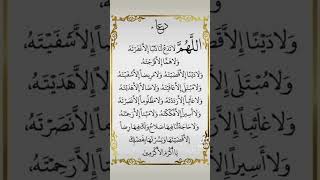 دعاء
اللَّهُمَّ لَا تَدَعْ لَنَا ذَنْبًا إِلَّا غَفَرْتَهُ
وَلَا هَمًّا إِلَّا فَرَّجْتَهُ
وَلَا دَيْنًا إِلَّا قَضَيْتَهُ وَلَا مَرِيضًا إِلَّا شَفَيْتَهُ
وَلَا مُبْتَلَىً إِلَّا عَافَيْتَهُ وَلَا ضَالًّا إِلَّا هَدَيْتَهُ
وَلَا غَائِبًا إِلَّا رَدَدْتَهُ وَلَا مَظْلُومًا إِلَّا نَصَرْتَهُ
وَلَا أَسِيرًا إِلَّا فَكَكْتَهُ وَلَا مَيِّتًا إِلَّا رَحِمْتَهُ
وَلَا حَاجَةً لَنَا فِيهَا صَلَاحٌ وَلَكَ فِيهَا رِضًا
إِلَّا قَضَيْتَهَا وَيَسَّرْتَهَا بِفَضْلِكَ
يَا أَكْرَمَ الْأَكْرَمِينَ